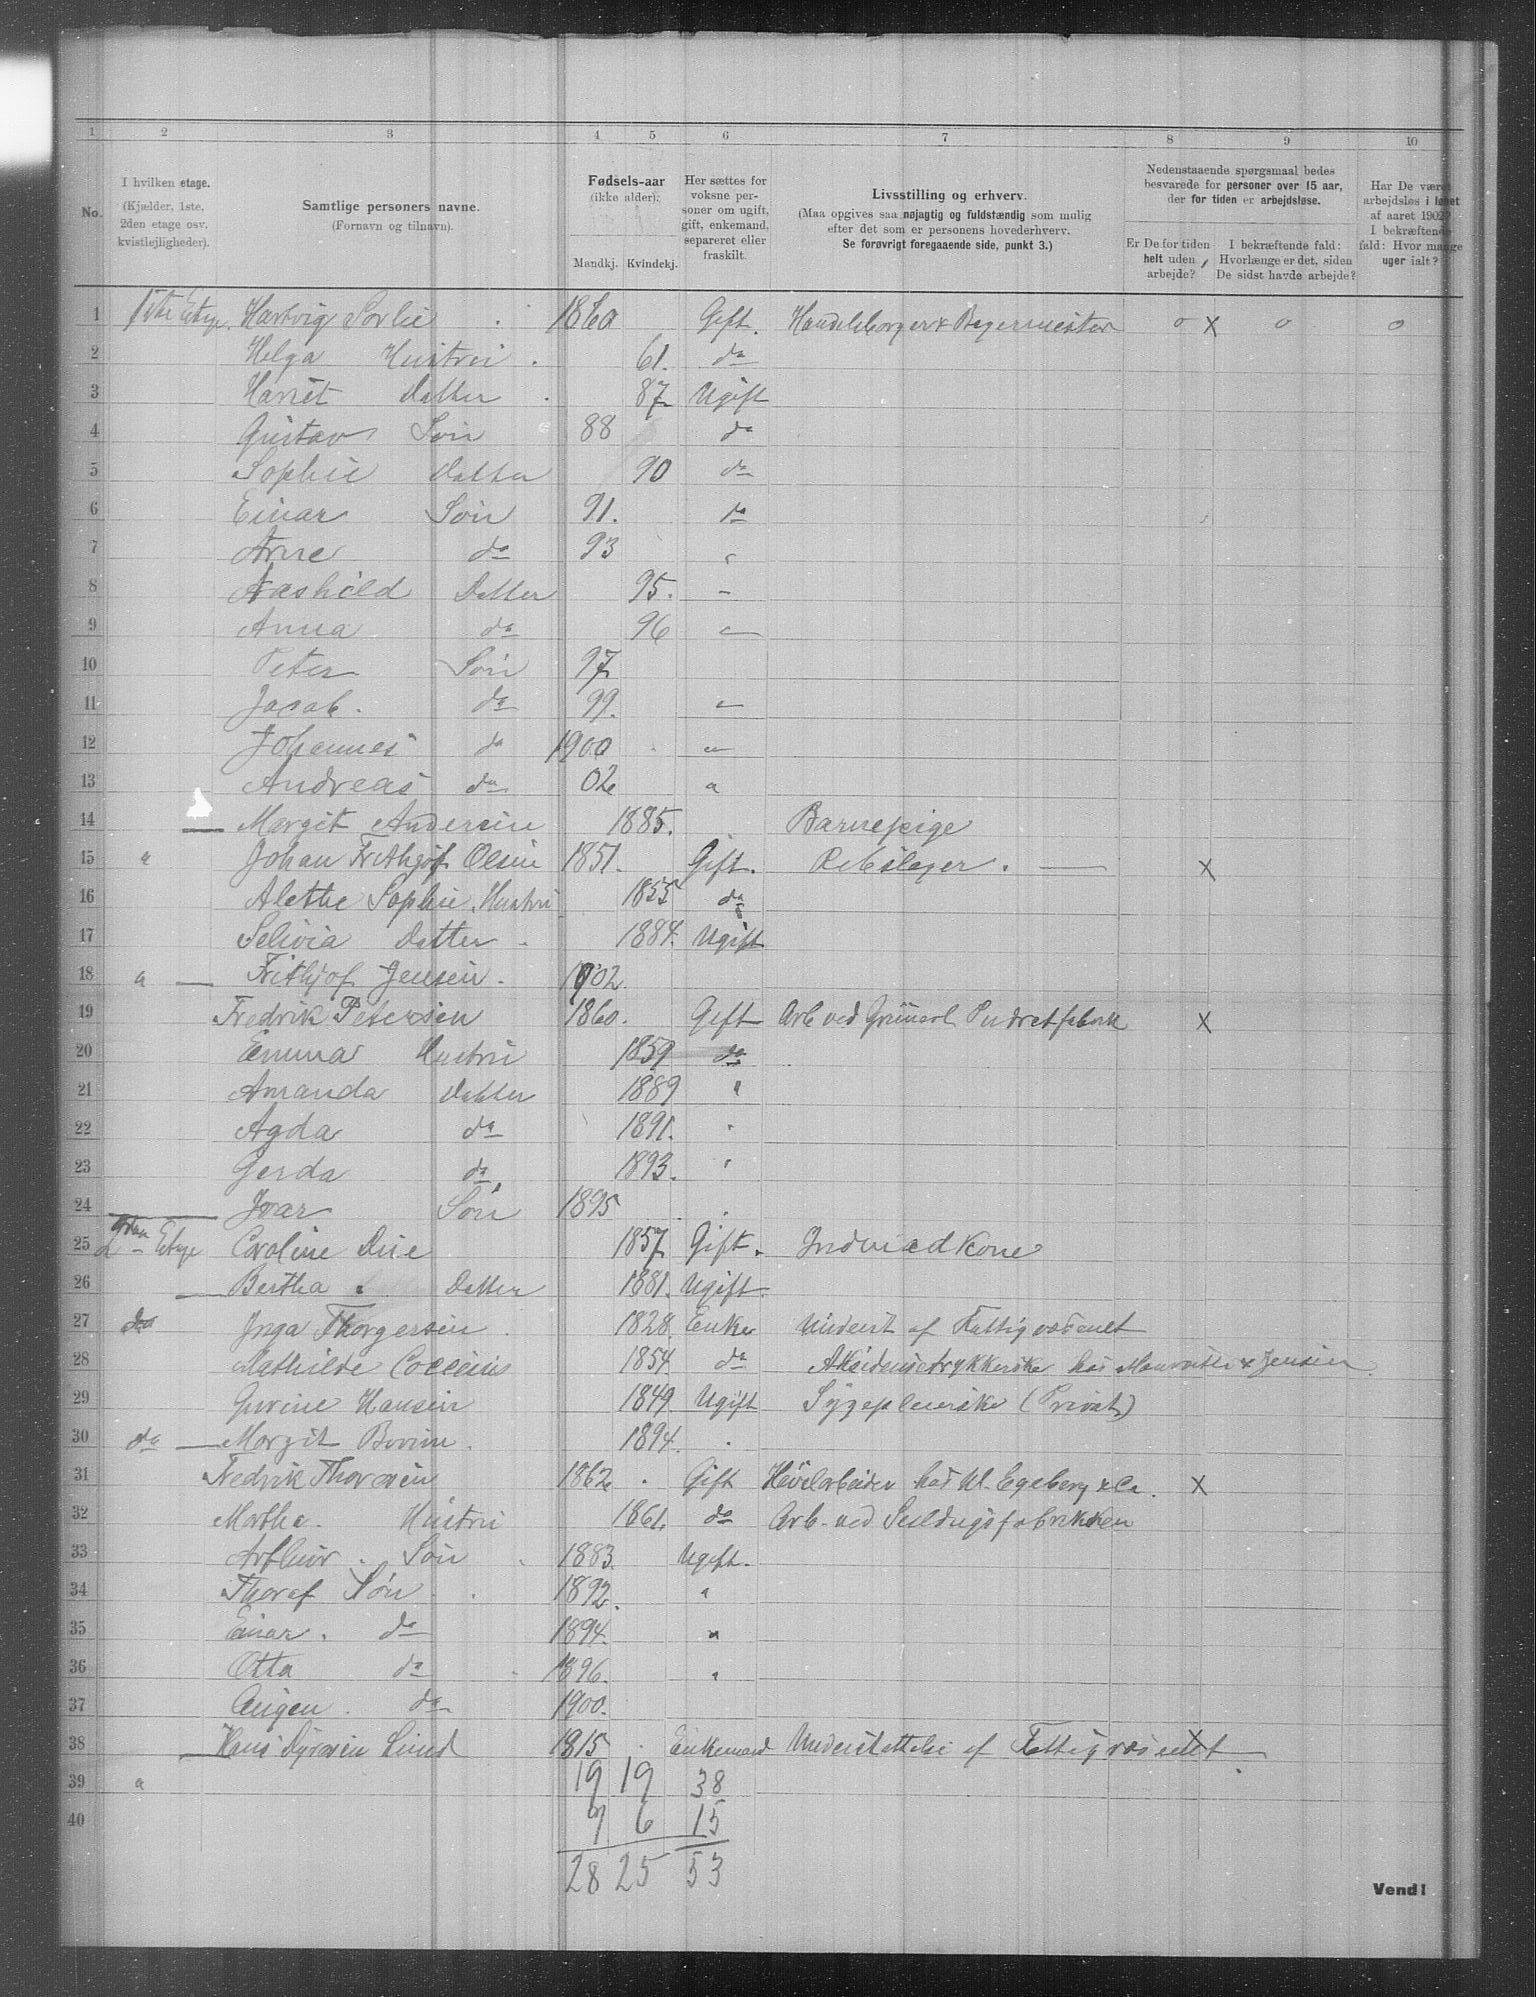 1 2 3 4 5 6 7 8 9 10
No.
I hvilken etage.
(Kjælder, 1ste,
2den etage osv.
kvistlejligheder).
Samtlige personers navne.
(Fornavn og tilnavn).
Fødsels-aar
(ikke alder).
Mandkj. Kvindekj.
Her sættes for
voksne per-
soner om ugift,
gift, enkemand,
separeret eller
fraskilt.
Livsstilling og erhverv.
(Maa opgives saa nøjagtig og fuldstændig som mulig
efter det som er personens hovederhverv.
Se forøvrigt foregaaende side, punkt 3.)
Nedenstaaende spørgsmaal bedes
besvarede for personer over 15 aar,
der for tiden er arbejdsløse.
Er De for tiden
helt uden
arbejde?
I bekræftende fald:
Hvorlænge er det, siden
De sidst havde arbejde?
Har De været
arbejdsløs i løbet
af aaret 1902?
I bekræftende
fald: Hvor mange
uger ialt?
1 1ste Etage. Hartvig Sørlie 1860 Gift. Handelsborger & Bøgermester o x o o
2 Helga Hustru 61. do
3 Harriet Datter 87 Ugift
4 Gustav Søn 88 do
5 Sophie Datter 90 do
6 Einar Søn 91. do
7 Arne do 93 "
8 Aashild Datter 95. -
9 Anna do 96 "
10 Peter Søn 97
11 Jacob. do 99. "
12 Johannes do 1900 "
13 Andreas do 02 "
14 Margit Andersen 1885. Barnepige
15 " Johan Frithjof Olsen 1851. Gift. Rebslager. x
16 Alethe Sophie Hustru 1855 do
17 Selivia Datter 1884. Ugift
18 " Frithjof Jensen. 1902
19 Fredrik Petersen 1860. Gift Arb ved Grünerl. Pudretfabrik x
20 Emma Hustru 1859 do
21 Amanda Datter 1889 "
22 Agda do 1891. "
23 Gerda do 1893. "
24 Ivar Søn 1895
25 2den Etage Caroline Due 1857 Gift. Indviedkone
26 Bertha Datter 1881. Ugift.
27 do Inga Thorgersen 1828 Enke Underst af Fattigvæsenet
28 Mathilde 1854. do Aksidensetrykkerske hos & Jensen
29 Gurine Hansen 1849. Ugift Sygepleierske (Privat)
30 do Margit 1894.
31 Fredrik Thoresen 1862 Gift Høvelarbeider hos W. Egeberg & Co. x
32 Marthe. Hustru 1861. do Arb. ved Seildugsfabrikken
33 Arthur. Søn 1883. Ugift.
34 Thoralf Søn 1892. "
35 Einar. do 1894. "
36 Otta do 1896. "
37 Eugen. do 1900.
38 Hans Lund 1815 Enkemand Understøttelse af Fattigvæsenet x
39 " 19 19 38
40 9 6 15
28 25 53
Vend!